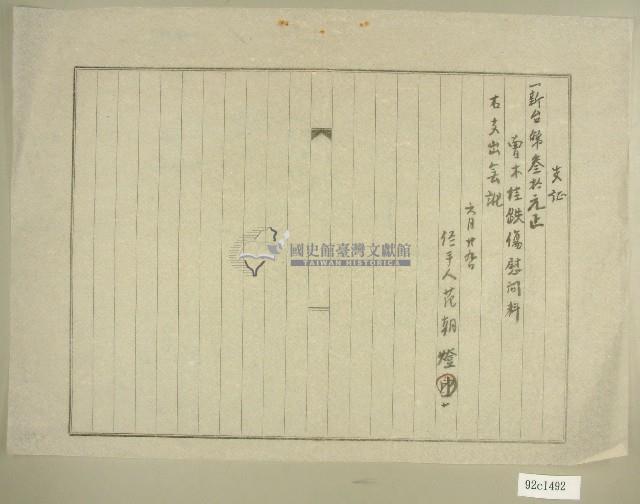 支証
一新台幣叁拾元正
曽木桂跌傷慰问料
右支出無訛
六月廿九日
経手人范朝燈
國史館臺灣文獻館
TAIWAN HISTORICA
92c1492